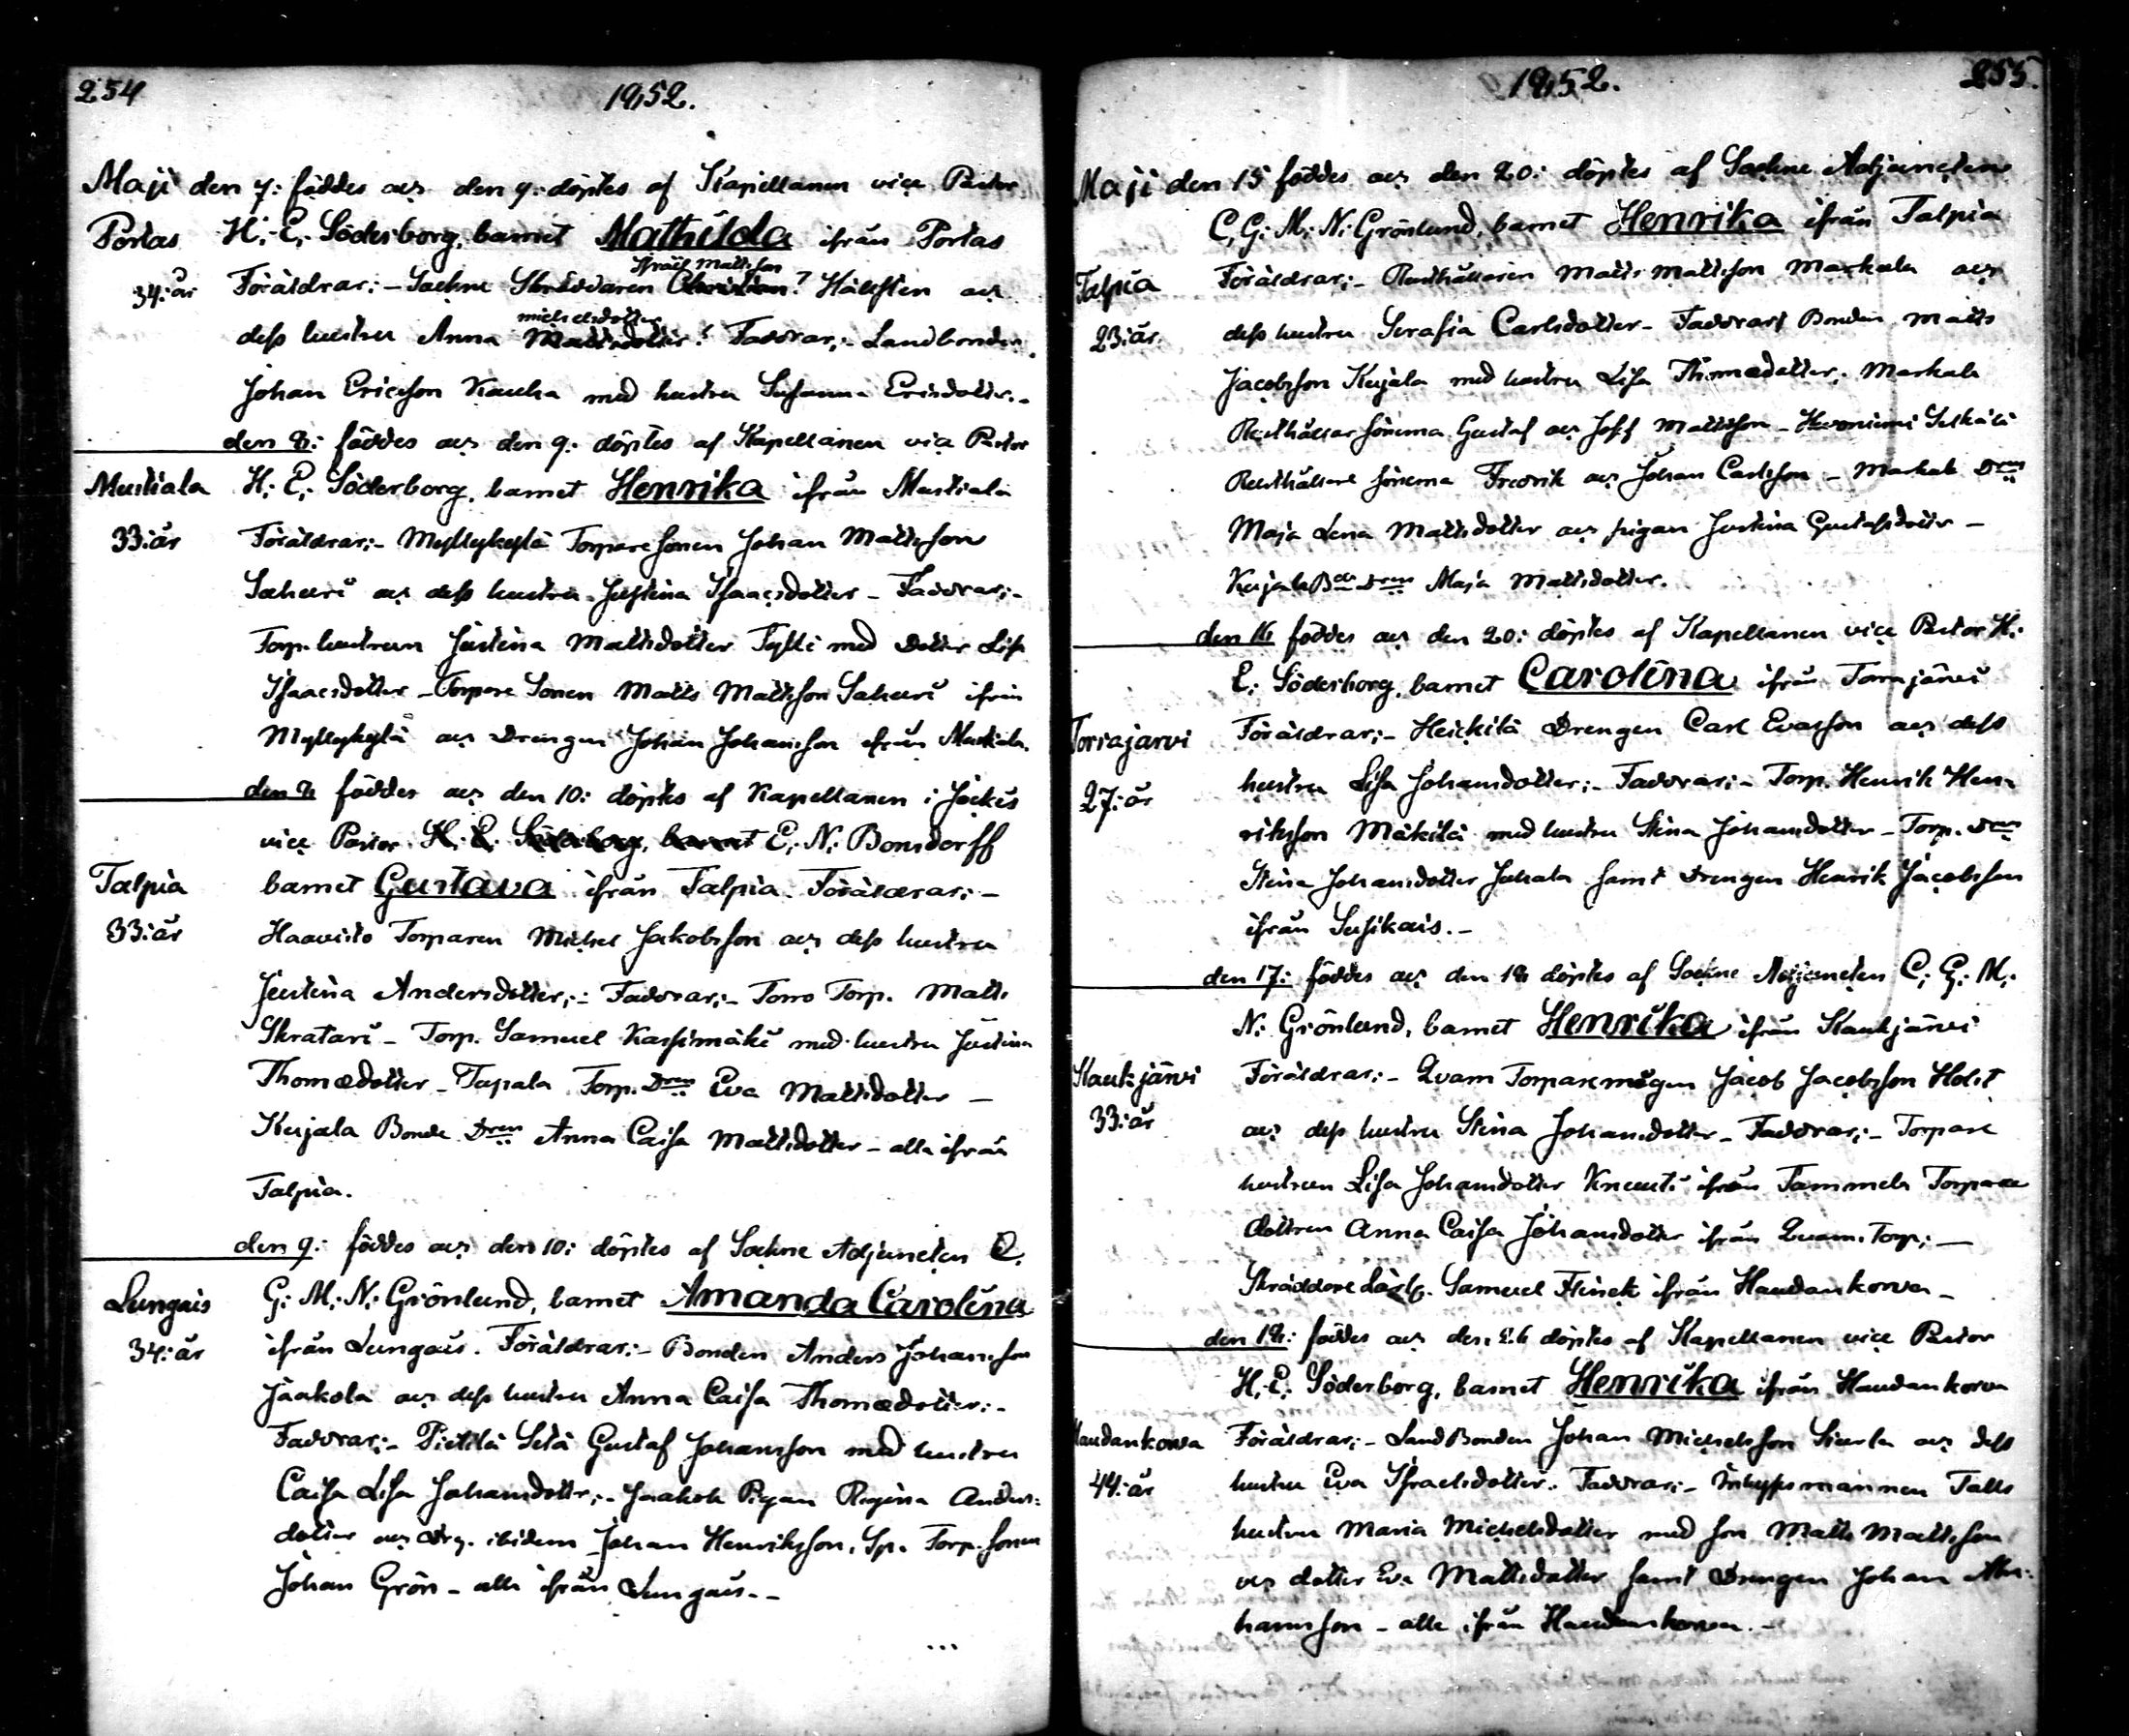 254
1852.
Maji den 7: föddes och den 9: döptes af Kapellanen vice Pastor
Portas H: E: Söderborg, barnet Mathilda ifrån Portas
Israel Mattsson
34: år Föräldrar:- Sockne Skräddaren Christian? Hällsten och
michelsdotter
dess hustru Anna Mattsdotter? Faddrar:- Landbonden
Johan Ericsson Kauha med hustru Susanna Ericsdotter.-
den 8: föddes och den 9. döptes af Kapellanen vice Pastor
Mustiala H: E: Söderborg, barnet Henrika ifrån Mustiala
33: år Föräldrar:- Myllykylä Torpare sonen Johan Mattsson
Sahari och dess hustru Justina Isaacsdotter - Faddrar:-
Torp. hustrun Justina Mattsdotter Tytti med Dotter Lisa
Isaacsdotter - Torpare Sonen Matts Mattsson Sahari ifrån
Myllykylä och Drengen Johan Johansson ifrån Mustiala.
den 8 föddes och den 10: döptes af Kapellanen i Jockis
vice Pastor H: E: Söderborg, barnet E: N: Bonsdorff
Talpia barnet Gustava ifrån Talpia. Föräldrar:-
33: år Haavisto Torparen Michel Jakobsson och dess hustru
Justina Andersdotter;- Faddrar:- Torro Torp. Matts
Skratari - Torp. Samuel Kassimäki med hustru Justina
Thomædotter - Tapala Torp. Dren Eva Mattsdotter -
Kujala Bonde Dren Anna Caisa Mattsdotter - alla ifrån
Talpia.
den 9: föddes och den 10: döptes af Sockne Adjuncten C.
Lungais G: M: N: Grönlund, barnet Amanda Carolina
34: år ifrån Lungais. Föräldrar:- Bonden Anders Johansson
Jaakola och dess hustru Anna Caisa Thomædotter:-
Faddrar:- Pietilä Setä Gustaf Johansson med hustru
Caisa Lisa Johansdotter;- Jaakola Pigan Regina Anders-
dotter och Drg. ibidem Johan Henriksson. Sp. Torp. sonen
Johan Grön - alla ifrån Lungais.-
...
1852.
255.
Maji den 15 föddes och den 20: döptes af Sockne Adjuncten
C: G: M: N: Grönlund, barnet Henrika ifrån Talpia
Talpia Föräldrar:- Rusthållaren Matts Mattsson Markala och
23: år dess hustru Serafia Carlsdotter - Faddrar: Bonden Matts
Jacobsson Kujala med hustru Lisa Thomædotter: Markala
Rusthållar sönerna Gustaf och Josef Mattsson - Harvoniemi
Rusthållare sönerna Fredrik och Johan Carlsson - Markala Dren
Maja Lena Mattsdotter och pigan Justina Gustafsdotter -
Kujala Bde Dren Maja Mattsdotter.
den 16 föddes och den 20: döptes af Kapellanen vice Pastor H:
E: Söderborg, barnet Carolina ifrån Torrajärvi
Torrajärvi Föräldrar:- Heickilä Drengen Carl Evasson och dess
27: år hustru Lisa Johansdotter:- Faddrar:- Torp. Henrik Hen-
riksson Mäkilä med hustru Stina Johansdotter - Torp. Dren
Stina Johansdotter Jahala samt Drengen Henrik Jacobsson
ifrån Susikais.-
den 17: föddes och den 18 döptes af Sockne Adjuncten C: G: M:
N: Grönlund, barnet Henrika ifrån Kaukjärvi
Kaukjärvi Föräldrar:- Qvarn Torparemågen Jacob Jacobsson Holst
33: år och dess hustru Stina Johansdotter - Faddrar:- Torpare
hustrun Lisa Johansdotter Knuuti ifrån Tammela Torpare
dottren Anna Caisa Johansdotter ifrån Qvarn. Torp:-
Skräddare Lärl. Samuel Flinck ifrån Haudankorva -
den 18: föddes och den 26 döptes af Kapellanen vice Pastor
H: E: Söderborg, barnet Henrika ifrån Haudankorva
Haudankorva Föräldrar:- LandBonden Johan Michelsson Sierla och dess
44: år hustru Eva Israelsdotter. Faddrar:- Inhyssmannen Talls
hustru Maria Michelsdotter med son Matts Mattsson
och dotter Eva Mattsdotter samt Drengen Johan Abra-
hamsson - alla ifrån Haudankorva.-